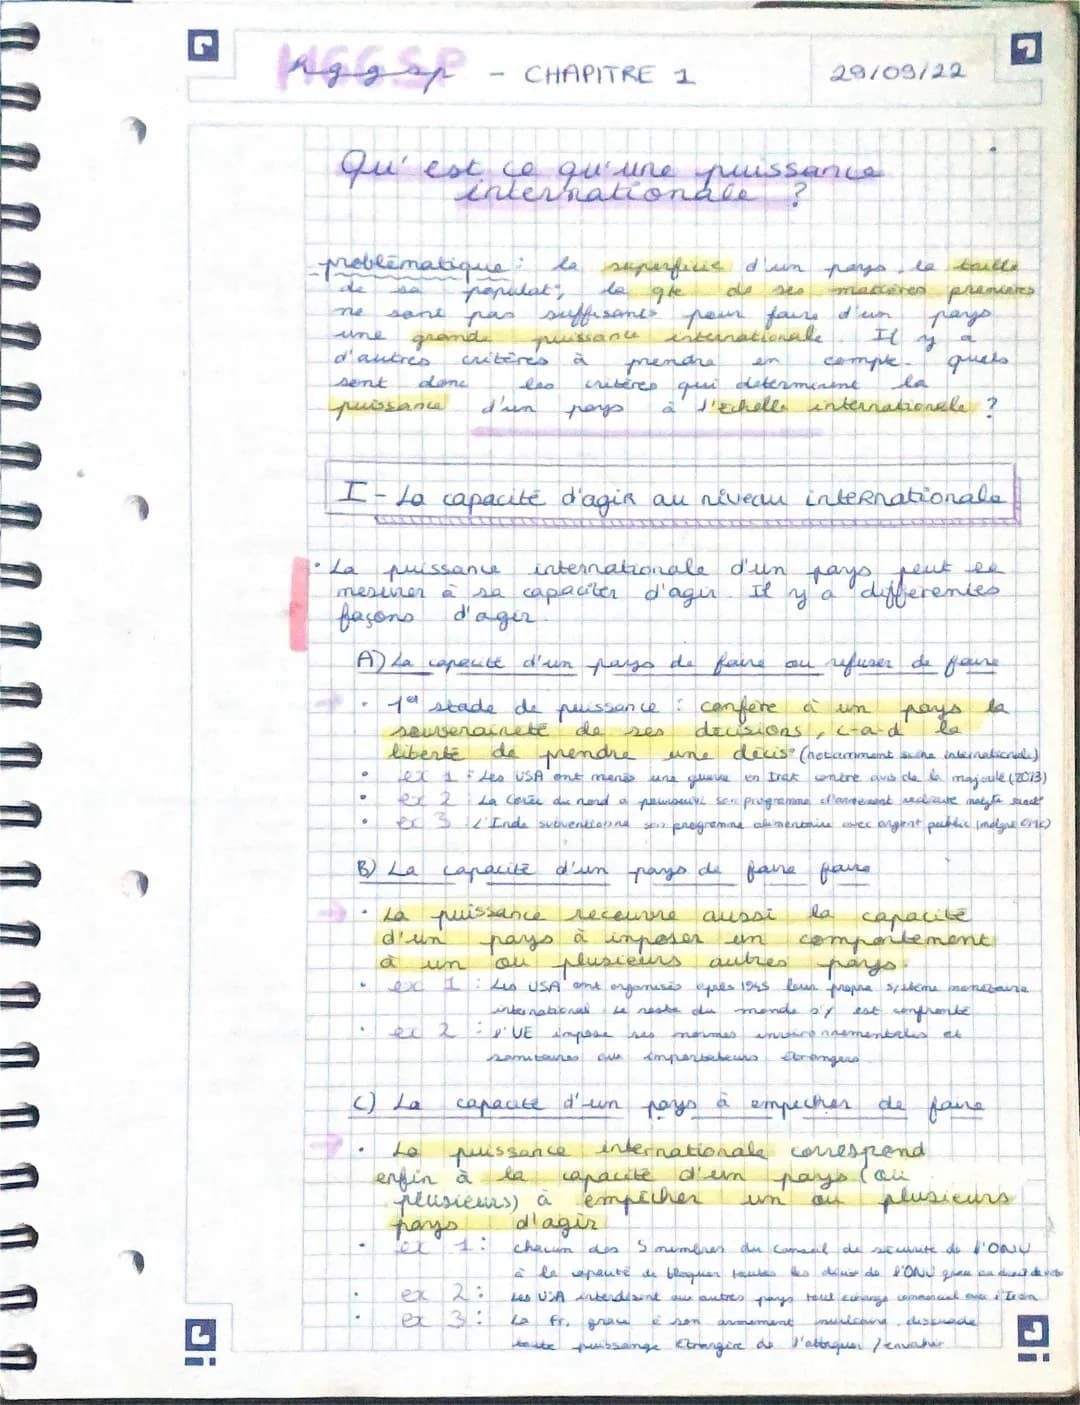 HGGSP
Hggsp - CHAPITRE 1
29/09/22
Qu'est ce qu'une puissance
internationale ?
problématique : la superficie d'un pays, la taille
de sa populat°, la qte de ses matières premières
ne sont pas suffisants pour faire d'un pays
une grande puissance internationale. Il y a
d'autres critères à prendre en compte. quels
sont donc les critères qui déterminent la
puissance d'un pays à l'échelle internationale ?
I - La capacité d'agir au niveau internationale
• La puissance internationale d'un pays peut se
mesurer à sa capaciter d'agir. Il y a différentes
façons d'agir.
A) La capacité d'un pays de faire ou refuser de faire
→ • 1er stade de puissance : confère à un pays la
souveraineté de ses décisions, c-a-d la
liberté de prendre une décis° (notamment scène internationale)
• ex 1 : Les USA ont menés une guerre en Irak contre avis de la majorité (2013)
• ex 2 : La Corée du nord a poursuivi son programme d'armement nucléaire malgré sanct°
• ex 3 : L'Inde subventionne son programme alimentaire avec argent public (malgré OMC)
B) La capacité d'un pays de faire faire
→ • La puissance recouvre aussi la capacité
d'un pays à imposer un comportement
à un ou plusieurs autres pays.
• ex 1 : Les USA ont organisés après 1945 leur propre système monétaire
international. Le reste du monde s'y est confronté
• ex 2 : l'UE impose ses normes environnementales et
sanitaires aux importateurs étrangers.
C) La capacité d'un pays à empecher de faire
→ • La puissance internationale correspond
enfin à la capacité d'un pays (ou
plusieurs) à empêcher un ou plusieurs
pays d'agir
• ex 1 : chacun des 5 membres du conseil de sécurité de l'ONU
à la capacité de bloquer toutes les décis° de l'ONU grace au droit de veto
• ex 2 : Les USA interdisent aux autres pays tout échange commercial avec l'Iran
• ex 3 : La Fr, grace à son armement nucléaire, dissuade
toute puissange étrangère de l'attaquer / envahir.